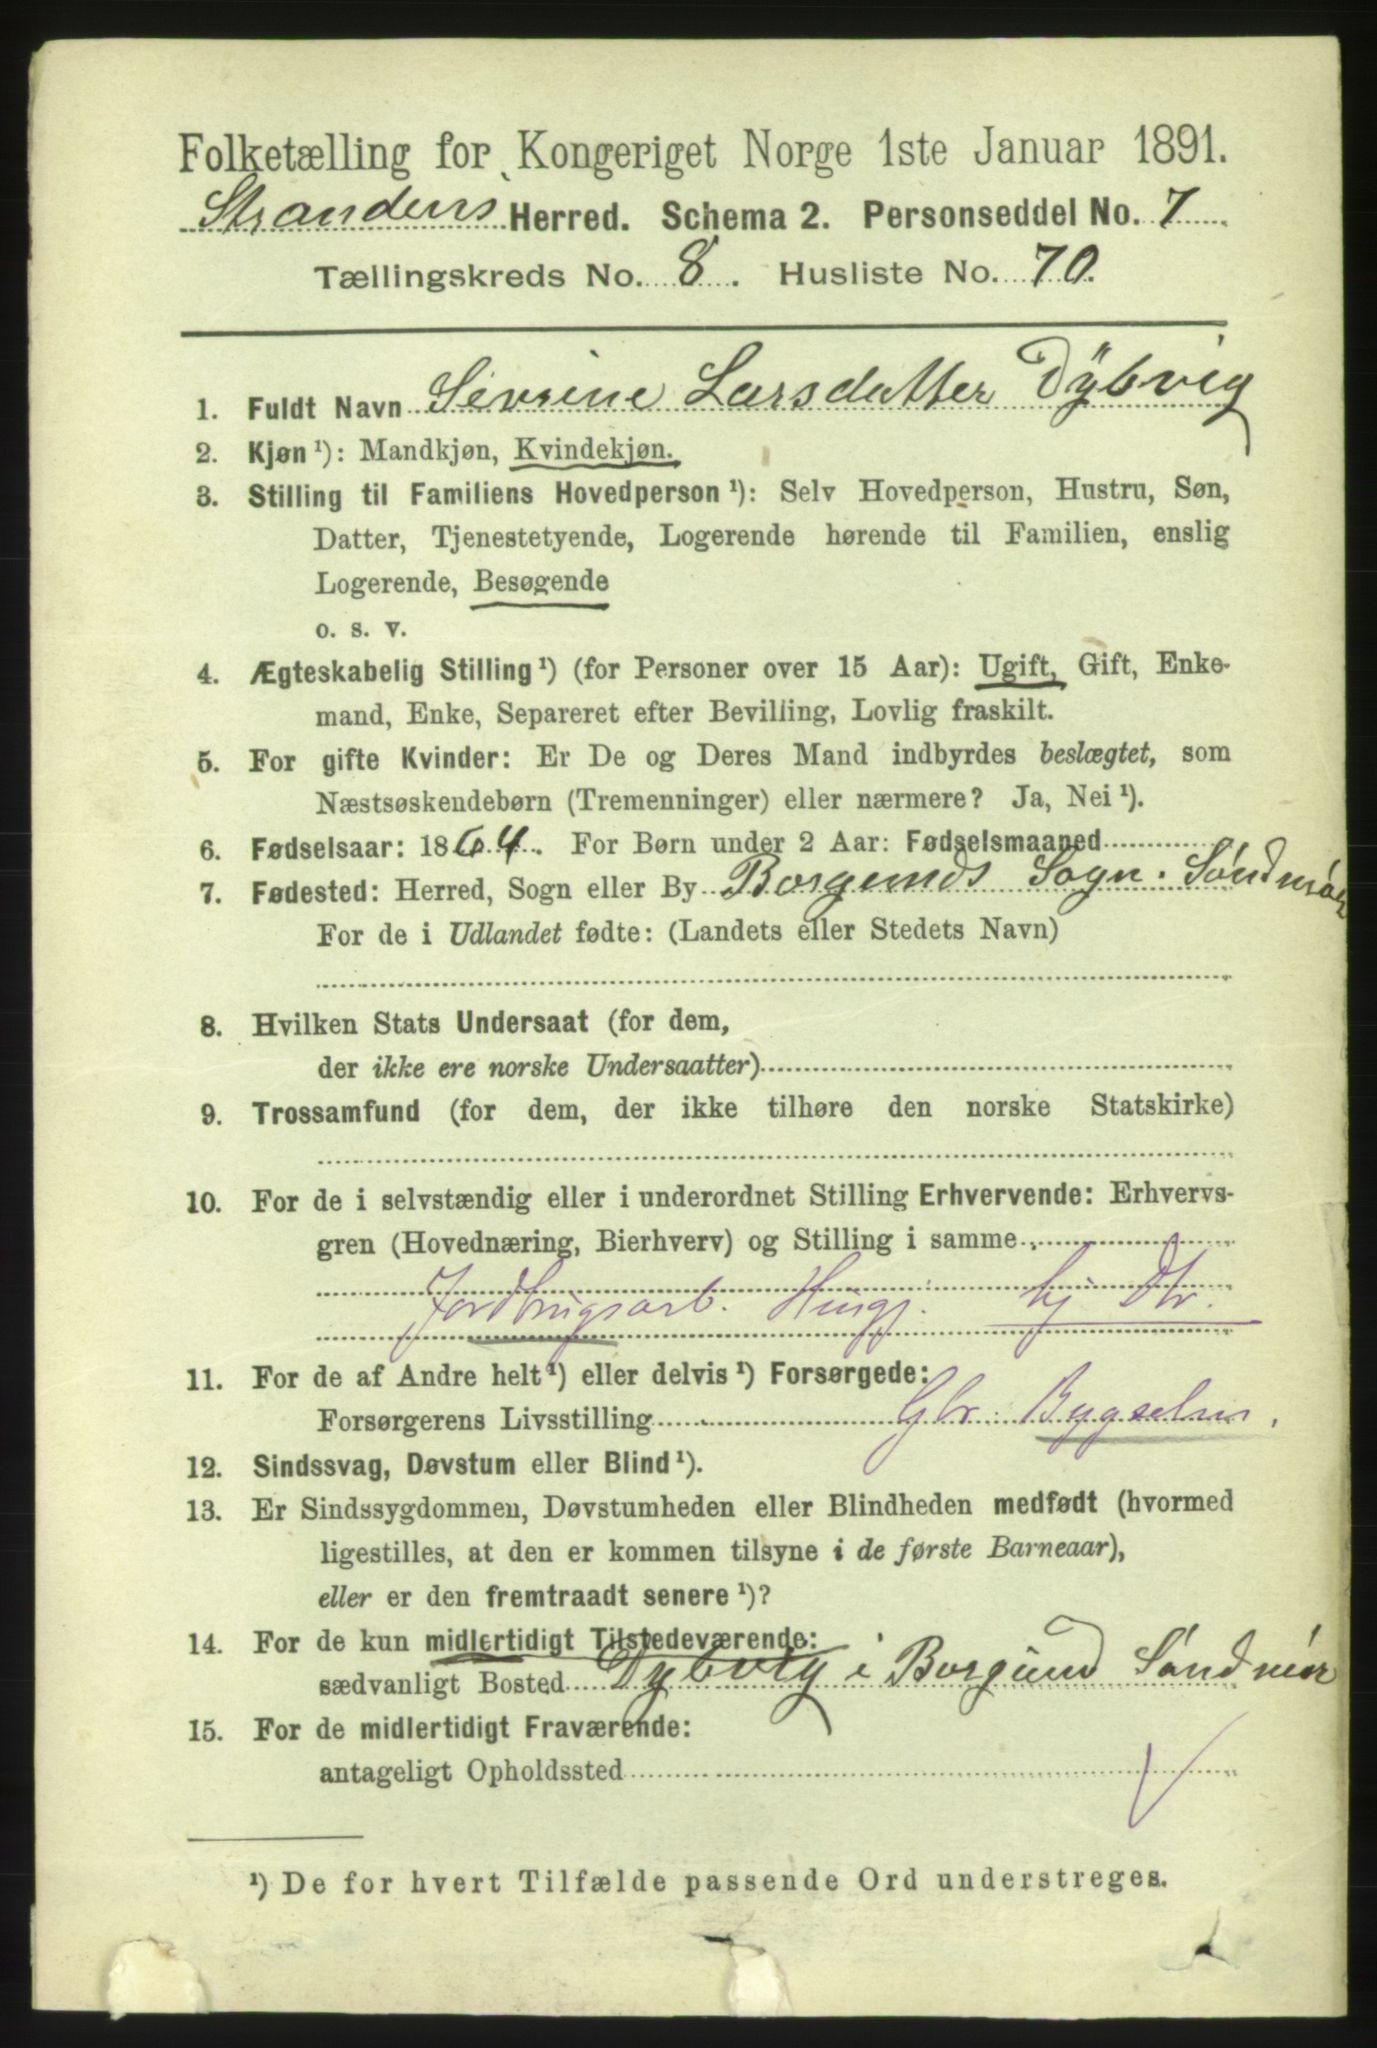 Folketælling for Kongeriget Norge 1ste Januar 1891.
Strandens Herred. Schema 2. Personseddel No. 7
Tællingskreds No. 8. Husliste No. 70.
1. Fuldt Navn Sivrine Larsdatter Dÿbvig
2. Kjøn¹): Mandkjøn, Kvindekjøn.
3. Stilling til Familiens Hovedperson¹): Selv Hovedperson, Hustru, Søn,
Datter, Tjenestetyende, Logerende hørende til Familien, enslig
Logerende, Besøgende
o. s. v.
4. Ægteskabelig Stilling¹) (for Personer over 15 Aar): Ugift, Gift, Enke-
mand, Enke, Separeret efter Bevilling, Lovlig fraskilt.
5. For gifte Kvinder: Er De og Deres Mand indbyrdes beslægtet, som
Næstsøskendebørn (Tremenninger) eller nærmere? Ja, Nei¹).
6. Fødselsaar: 1864. For Børn under 2 Aar: Fødselsmaaned
7. Fødested: Herred, Sogn eller By Borgunds Sogn. Søndmør
For de i Udlandet fødte: (Landets eller Stedets Navn)
8. Hvilken Stats Undersaat (for dem,
der ikke ere norske Undersaatter)
9. Trossamfund (for dem, der ikke tilhøre den norske Statskirke)
10. For de i selvstændig eller i underordnet Stilling Erhvervende: Erhvervs-
gren (Hovednæring, Bierhverv) og Stilling i samme
Jordbrugsarb. Husgj. hj Dtr.
11. For de af Andre helt¹) eller delvis¹) Forsørgede:
Forsørgerens Livsstilling Gbr.
12. Sindssvag, Døvstum eller Blind¹).
13. Er Sindssygdommen, Døvstumheden eller Blindheden medfødt (hvormed
ligestilles, at den er kommen tilsyne i de første Barneaar),
eller er den fremtraadt senere¹)?
14. For de kun midlertidigt Tilstedeværende:
sædvanligt Bosted Dybvig i Borgund Søndmør
15. For de midlertidigt Fraværende:
antageligt Opholdssted
¹) De for hvert Tilfælde passende Ord understreges.